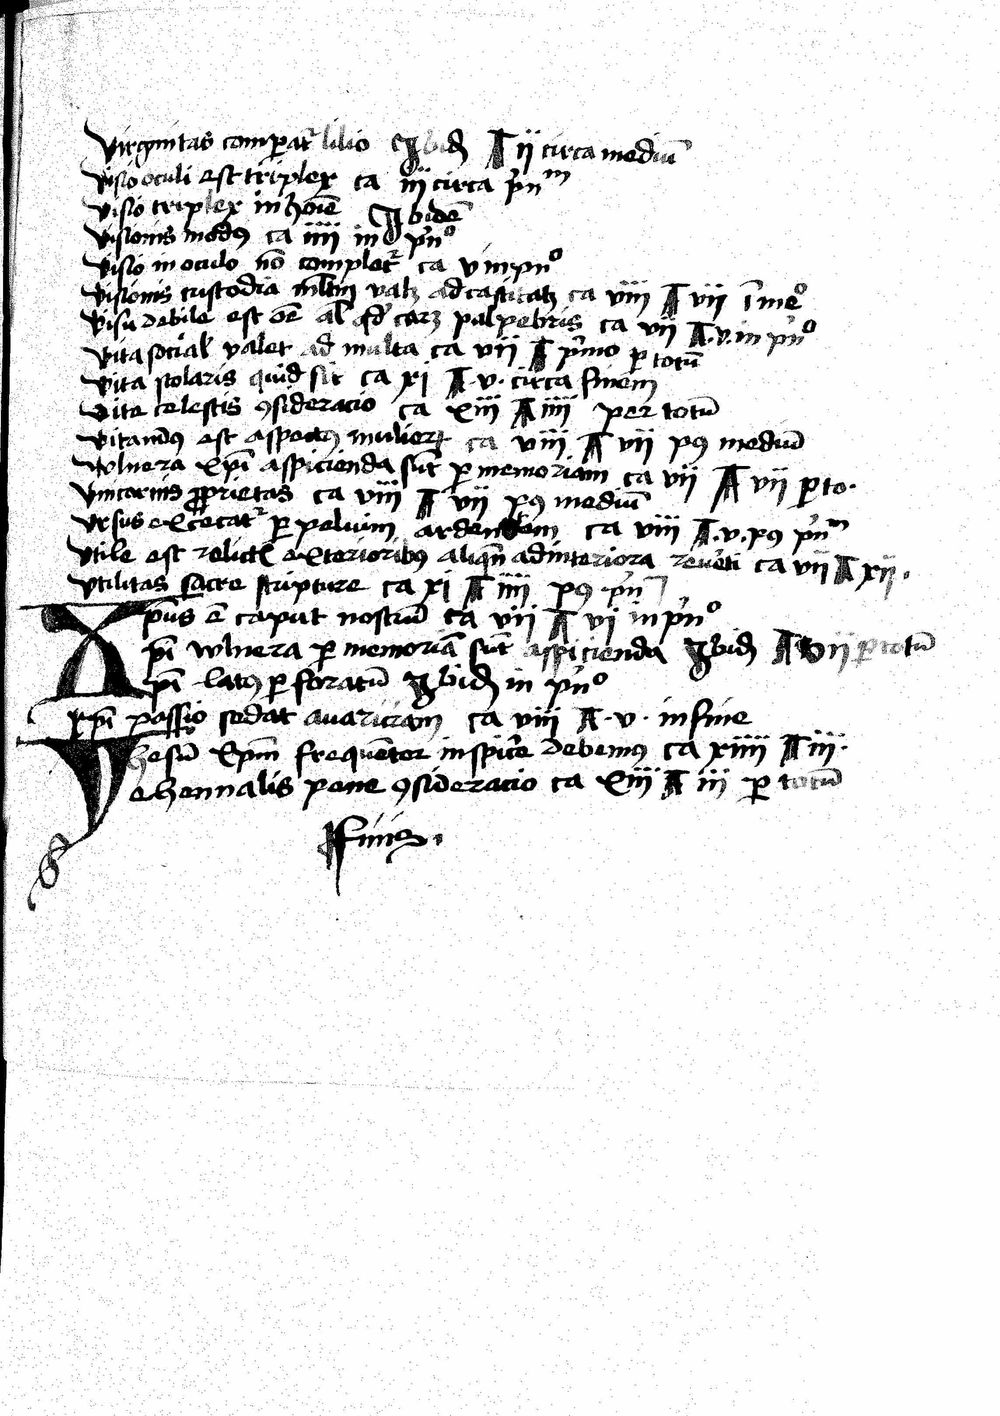 Virginitas comparat^r lilio Ibid̄ A ii circa mediū
Visio oculi est triplex ca iii circa p̄n^m
Visio triplex in hoīe Ibidē
Visionis modꝯ ca iiii in p̄n^o
Visio in oculo nō complet^r ca v in p̄n^o
Visionis custodia ml̄tū valꝫ ad castitatꝫ ca viii A vii ī me^o
Visu debile est oē al̄ qđ carꝫ palpebris ca vii A.v. in p̄n^o
Vita social̄ valet ad multa ca vii A p̄mo ꝑ totū
Vita scolaris quid sit ca xi A.v. circa finem
Vite celestis ꝯsideracio ca xiii A iiii per totū
Vitandꝯ est aspectꝯ mulierꝝ ca viii A vii pꝯ mediū
Vulnera xp̄i aspicienda sūt ꝑ memoriam ca vii A vii ꝑ to.
Vnicornis ꝓprietas ca viii A vii pꝯ mediū
Vrsus excecat^r ꝑ peluim ardentem ca viii A.v. pꝯ p̄n^m
Vtile est relictꝭ exterioribꝯ aliqn̄ ad interiora reu̅ti ca vii A xii.
Vtilitas sacre scripture ca xi A iiii pꝯ p̄n
Xp̄us ē caput nostrū ca vii A vi in p̄n^o
xp̄i vulnera ꝑ memoriā sūt aspicienda Ibid̄ A vii ꝑ totū
xp̄i latꝯ ꝑforatū Ibid̄ in p̄n^o
xp̄i passio sedat auariciam ca viii A.v. in fine
Yhesū xp̄m frequēter inspic̄e debemꝯ ca xiiii A iii.
Yehennalis pene ꝯsideracio ca xiii A iii ꝑ totū
Finis.